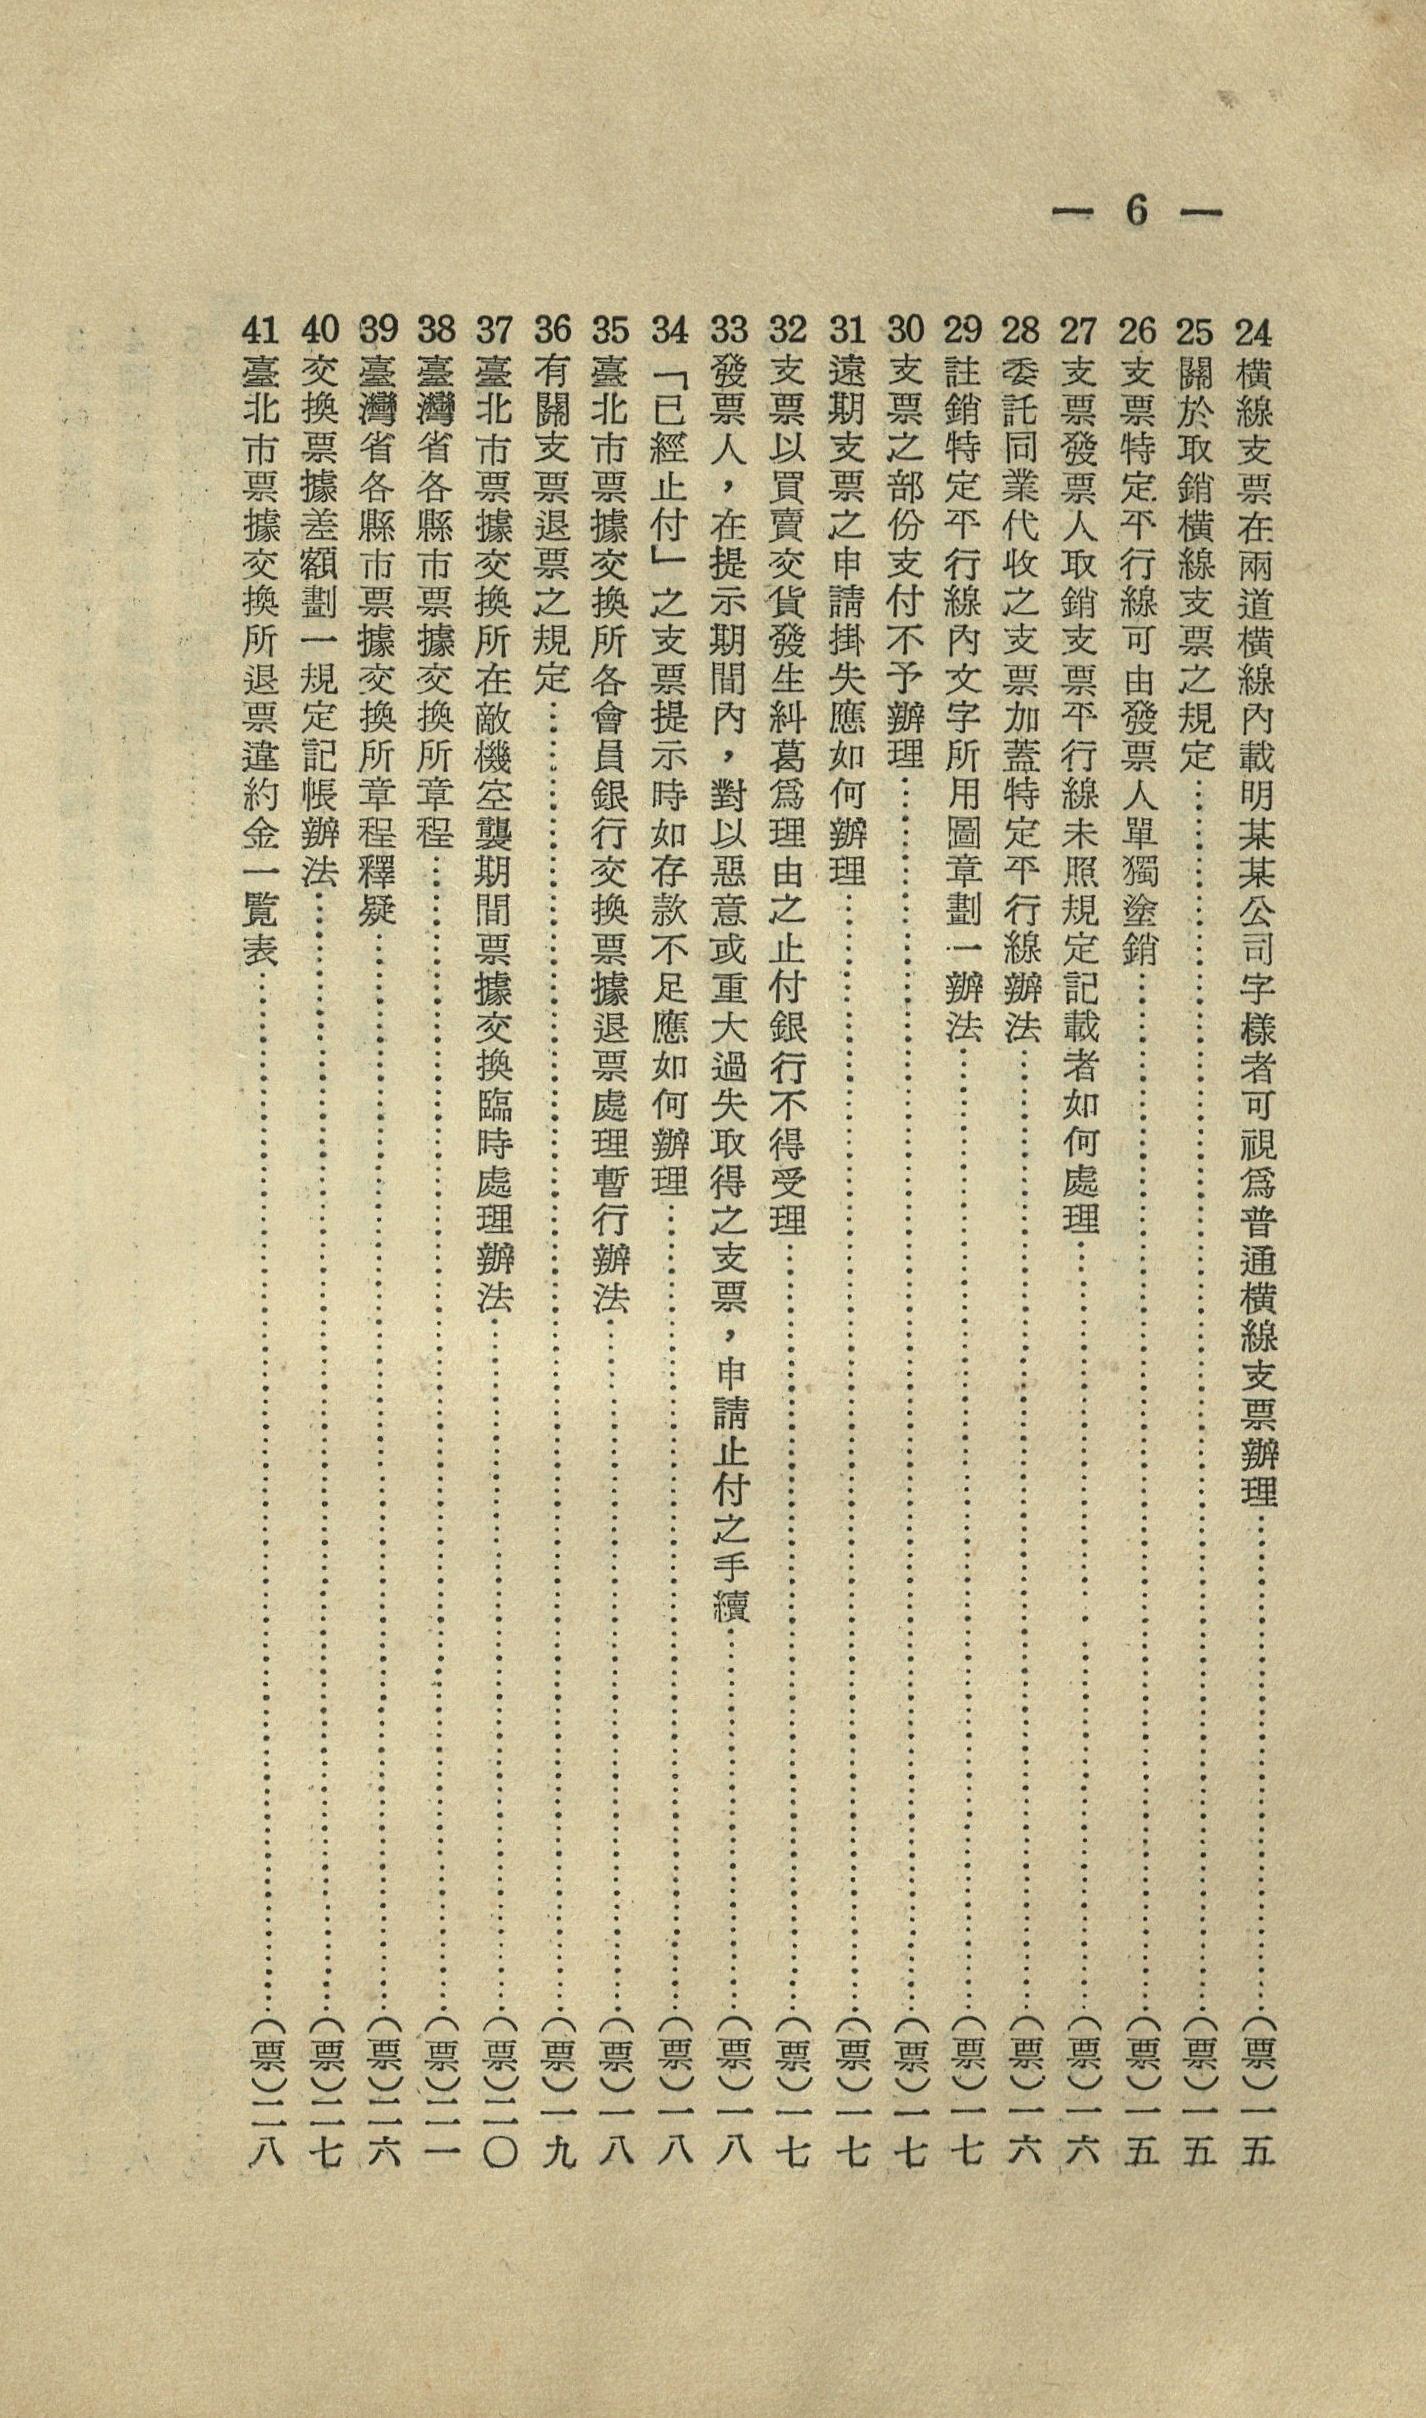 — 6 —
24 橫線支票在兩道橫線內載明某某公司字樣者可視爲普通橫線支票辦理……(票)一五
25 關於取銷橫線支票之規定……(票)一五
26 支票特定平行線可由發票人單獨塗銷……(票)一五
27 支票發票人取銷支票平行線未照規定記載者如何處理……(票)一六
28 委託同業代收之支票加蓋特定平行線辦法……(票)一六
29 註銷特定平行線內文字所用圖章劃一辦法……(票)一七
30 支票之部份支付不予辦理……(票)一七
31 遠期支票之申請掛失應如何辦理……(票)一七
32 支票以買賣交貨發生糾葛爲理由之止付銀行不得受理……(票)一七
33 發票人，在提示期間內，對以惡意或重大過失取得之支票，申請止付之手續……(票)一八
34 「已經止付」之支票提示時如存款不足應如何辦理……(票)一八
35 臺北市票據交換所各會員銀行交換票據退票處理暫行辦法……(票)一八
36 有關支票退票之規定……(票)一九
37 臺北市票據交換所在敵機空襲期間票據交換臨時處理辦法……(票)二〇
38 臺灣省各縣市票據交換所章程……(票)二一
39 臺灣省各縣市票據交換所章程釋疑……(票)二六
40 交換票據差額劃一規定記帳辦法……(票)二七
41 臺北市票據交換所退票違約金一覽表……(票)二八